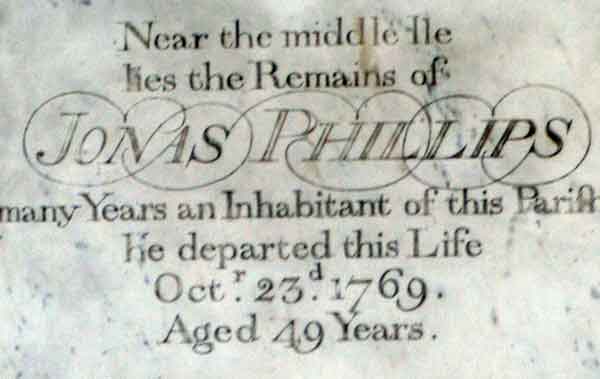 Near the middle Ile
lies the Remains of
JONAS PHILLIPS
many Years an Inhabitant of this Parish
he departed this Life
Octr. 23d. 1769.
Aged 49 Years.